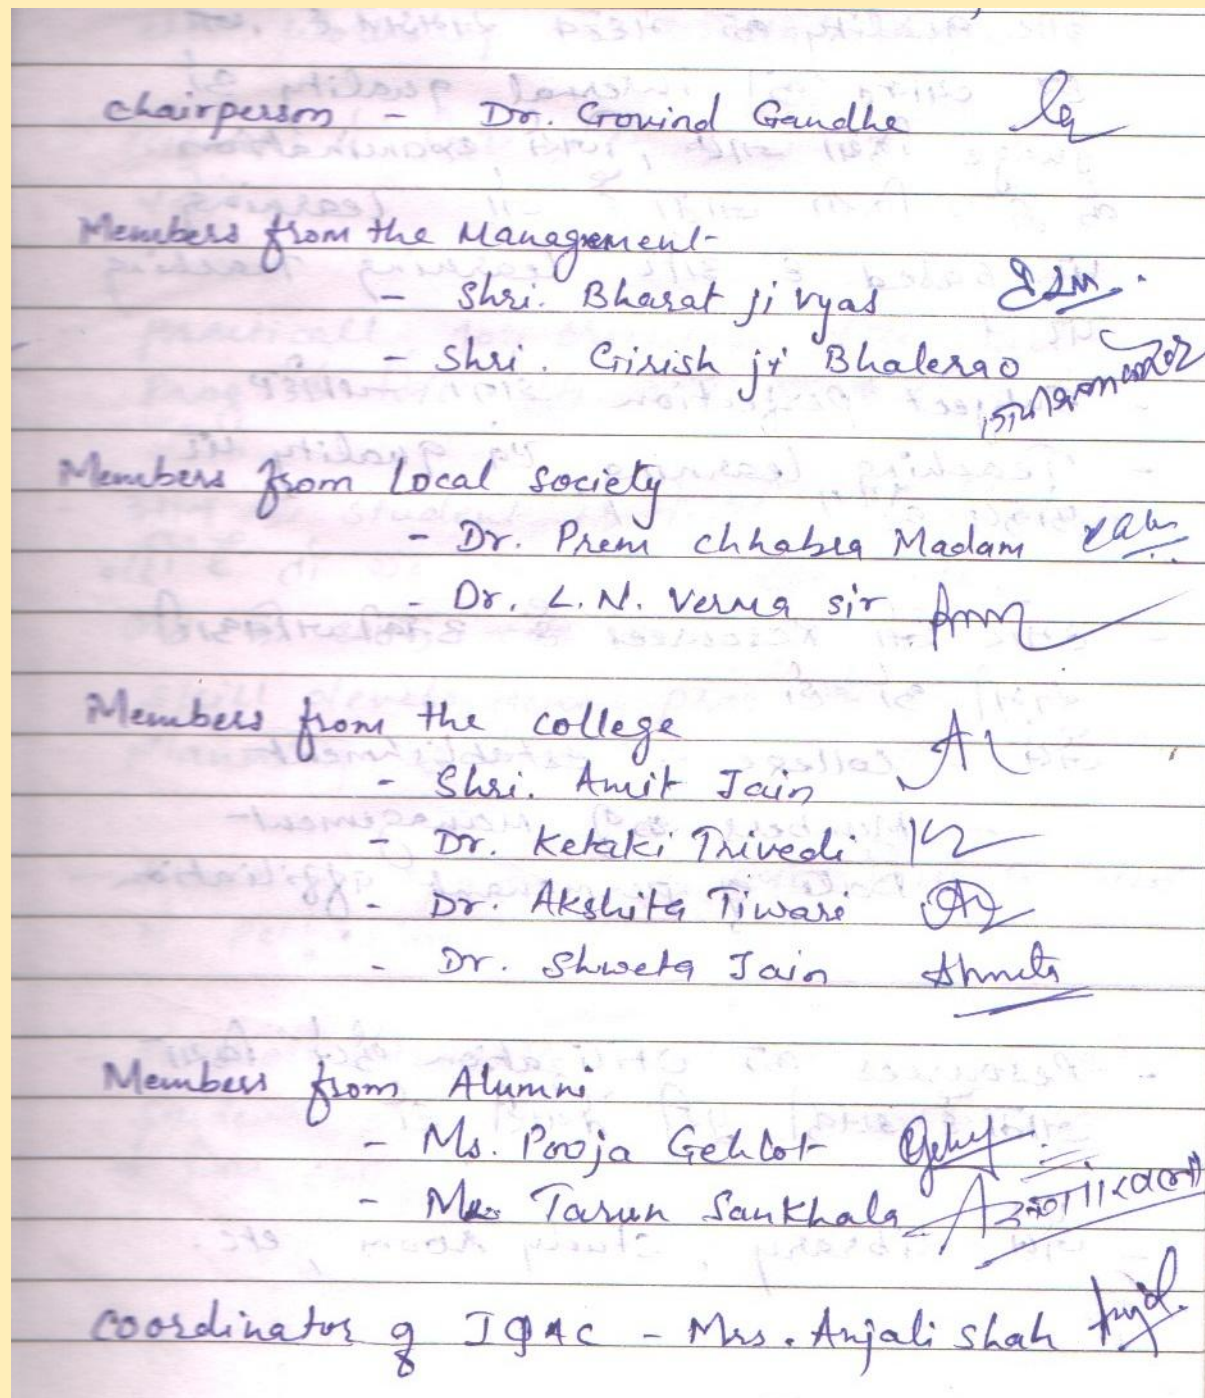 Chairperson - Dr. Govind Gandhe
Members from the Management-
- Shri. Bharat ji vyas
- Shri. Girish ji Bhalerao
Members from Local Society
- Dr. Prem chhabra Madam
- Dr. L.N. Verma sir
Members from the college
- Shri. Amit Jain
- Dr. Ketaki Trivedi
- Dr. Akshita Tiwari
- Dr. Shweta Jain Shweta
Members from Alumni
- Ms. Pooja Gehlot
- Mr. Tarun Sankhala
Coordinator of IQAC - Mrs. Anjali Shah